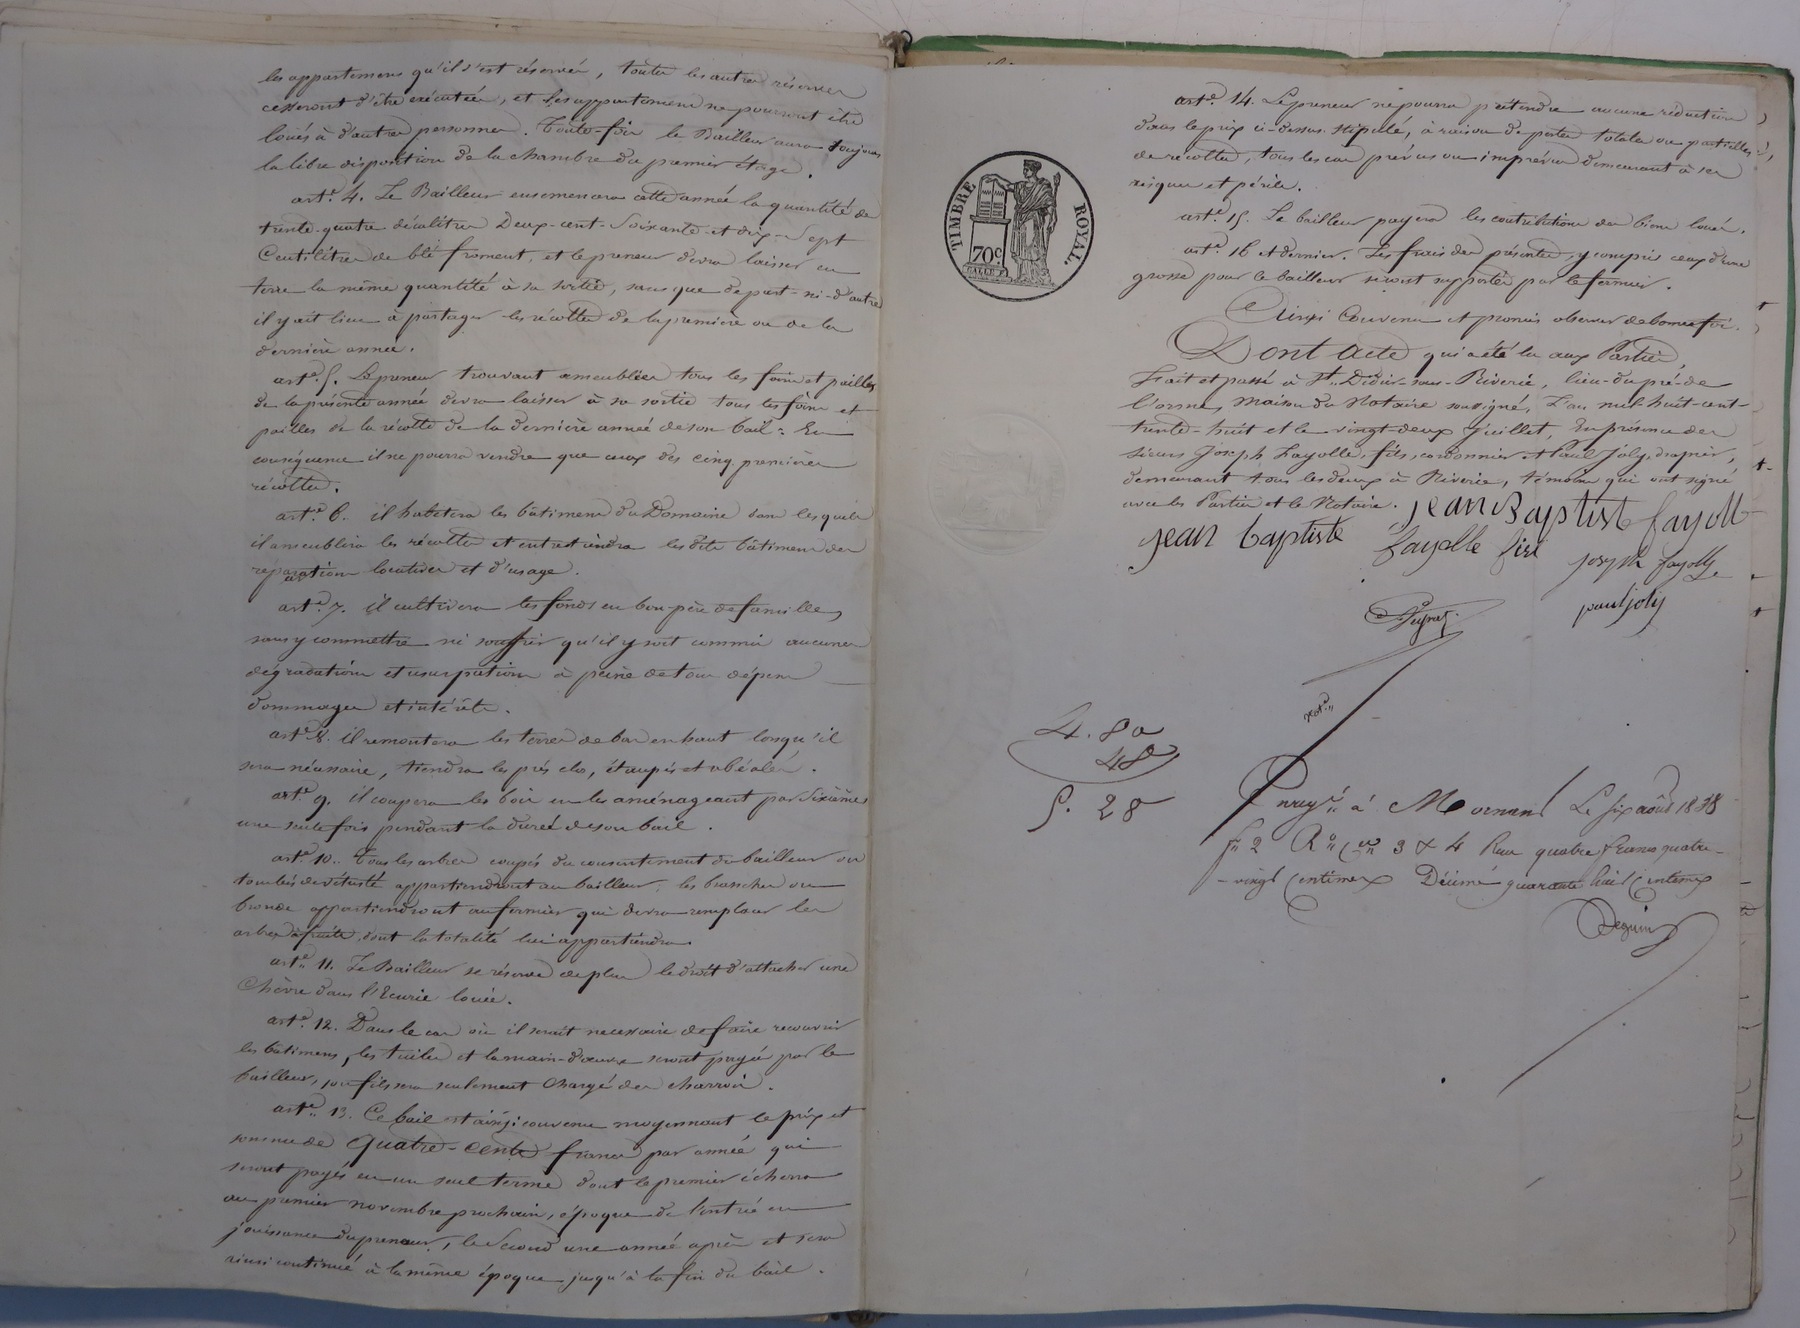 les appartemens qu'il s'est réservés, toutes les autres réserves
cesseront d'être exécutées, et les appartemens ne pourront être
loués à d'autres personnes. Toute-fois le Bailleur aura toujours
la libre disposition de la chambre du premier étage.
art.e 4. Le Bailleur ensemencera cette année la quantité de
trente-quatre décalitres Deux-cent-soixante-et-dix-sept
Centilitres de blé froment, et le preneur devra laisser en
terre la même quantité à sa sortie, sans que de part-ni-d'autre
il y ait lieu à partager les récoltes de la première ou de la
dernière année.
art.e 5. Le preneur trouvant ameublées tous les foins et pailles
de la présente année devra laisser à sa sortie tous les foins et
pailles de la récolte de la dernière année de son bail: En
conséquence il ne pourra vendre que ceux des cinq premières
récoltes.
art.e 6. il habitera les bâtimens du Domaine dans lesquels
il ameublira les récoltes et entretiendra les dits bâtimens des
réparations locatives et d'usage.
art.e 7. il cultivera les fonds en bon-père de famille,
sans y commettre ni souffrir qu'il y soit commis aucunes
dégradations et usurpations à peine de tous dépens
dommages et intérêts.
art.e 8. il remontera les terres de bas en haut lorsqu'il
sera nécessaire, tiendra les prés clos, étaupés et
art.e 9. il coupera les bois en les aménageant par sixièmes
une seule fois pendant la durée de son bail.
art.e 10. Tous les arbres coupés du consentement du bailleur ou
tombés de vétusté appartiendront au bailleur; les branches ou
bronde appartiendront au fermier qui devra remplacer les
arbres à fruits, dont la totalité lui appartiendra.
art.e 11. Le Bailleur se réserve de plus le droit d'attacher une
Chèvre dans l'Ecurie louée.
art.e 12. Dans le cas où il serait necessaire de faire recouvrir
les bâtimens, les tuiles et la main-d'œuvre seront payés par le
bailleur, son fils sera seulement chargé des charrois.
art.e 13. Ce bail est ainsi convenu moyennant le prix et
somme de quatre-cents francs par année qui
seront payés en un seul terme dont le premier écherra
au premier novembre prochain, époque de l'entrée en
jouissance du preneur, le Second une année après et sera
ainsi continué à la même époque jusqu'à la fin du bail.
TIMBRE ROYAL.
70c.
art.e 14. Le preneur ne pourra prétendre aucune réduction
dans le prix ci-dessus stipulé, à raison de pertes totales ou partielles
de récoltes, tous les cas prévus ou imprévus demeurant à ses
risques et périls.
art.e 15. Le bailleur payera les contributions des biens loués.
art.e 16 et dernier. Les frais des présentes, y compris ceux d'une
grosse pour le bailleur seront supportés par le fermier.
Ainsi Convenu et promis observer de bonne foi.
Dont Acte qui a été lu aux Parties,
Fait et passé à St. Didier-sous-Riverie, lieu-du pré-de
l'orme, maison du Notaire soussigné, L'an mil-huit-cent-
trente-huit et le vingt-deux Juillet, En présence des
sieurs Joseph Fayolle, fils, cordonnier et Paul Joly, drapier,
demeurant tous les deux à Riverie, témoins qui ont signé
avec les Parties et le Notaire. jean Baptiste fayolle
jean baptiste fayolle fils joseph fayolle
paul joly
Not.re
4. 80
48
5. 28
Enreg.é à Mornant Le six août 1838
f.o 2 R.o C.es 3 & 4 Reçu quatre francs quatre-
-vingt Centimes Décime quarante huit Centimes
Deguin